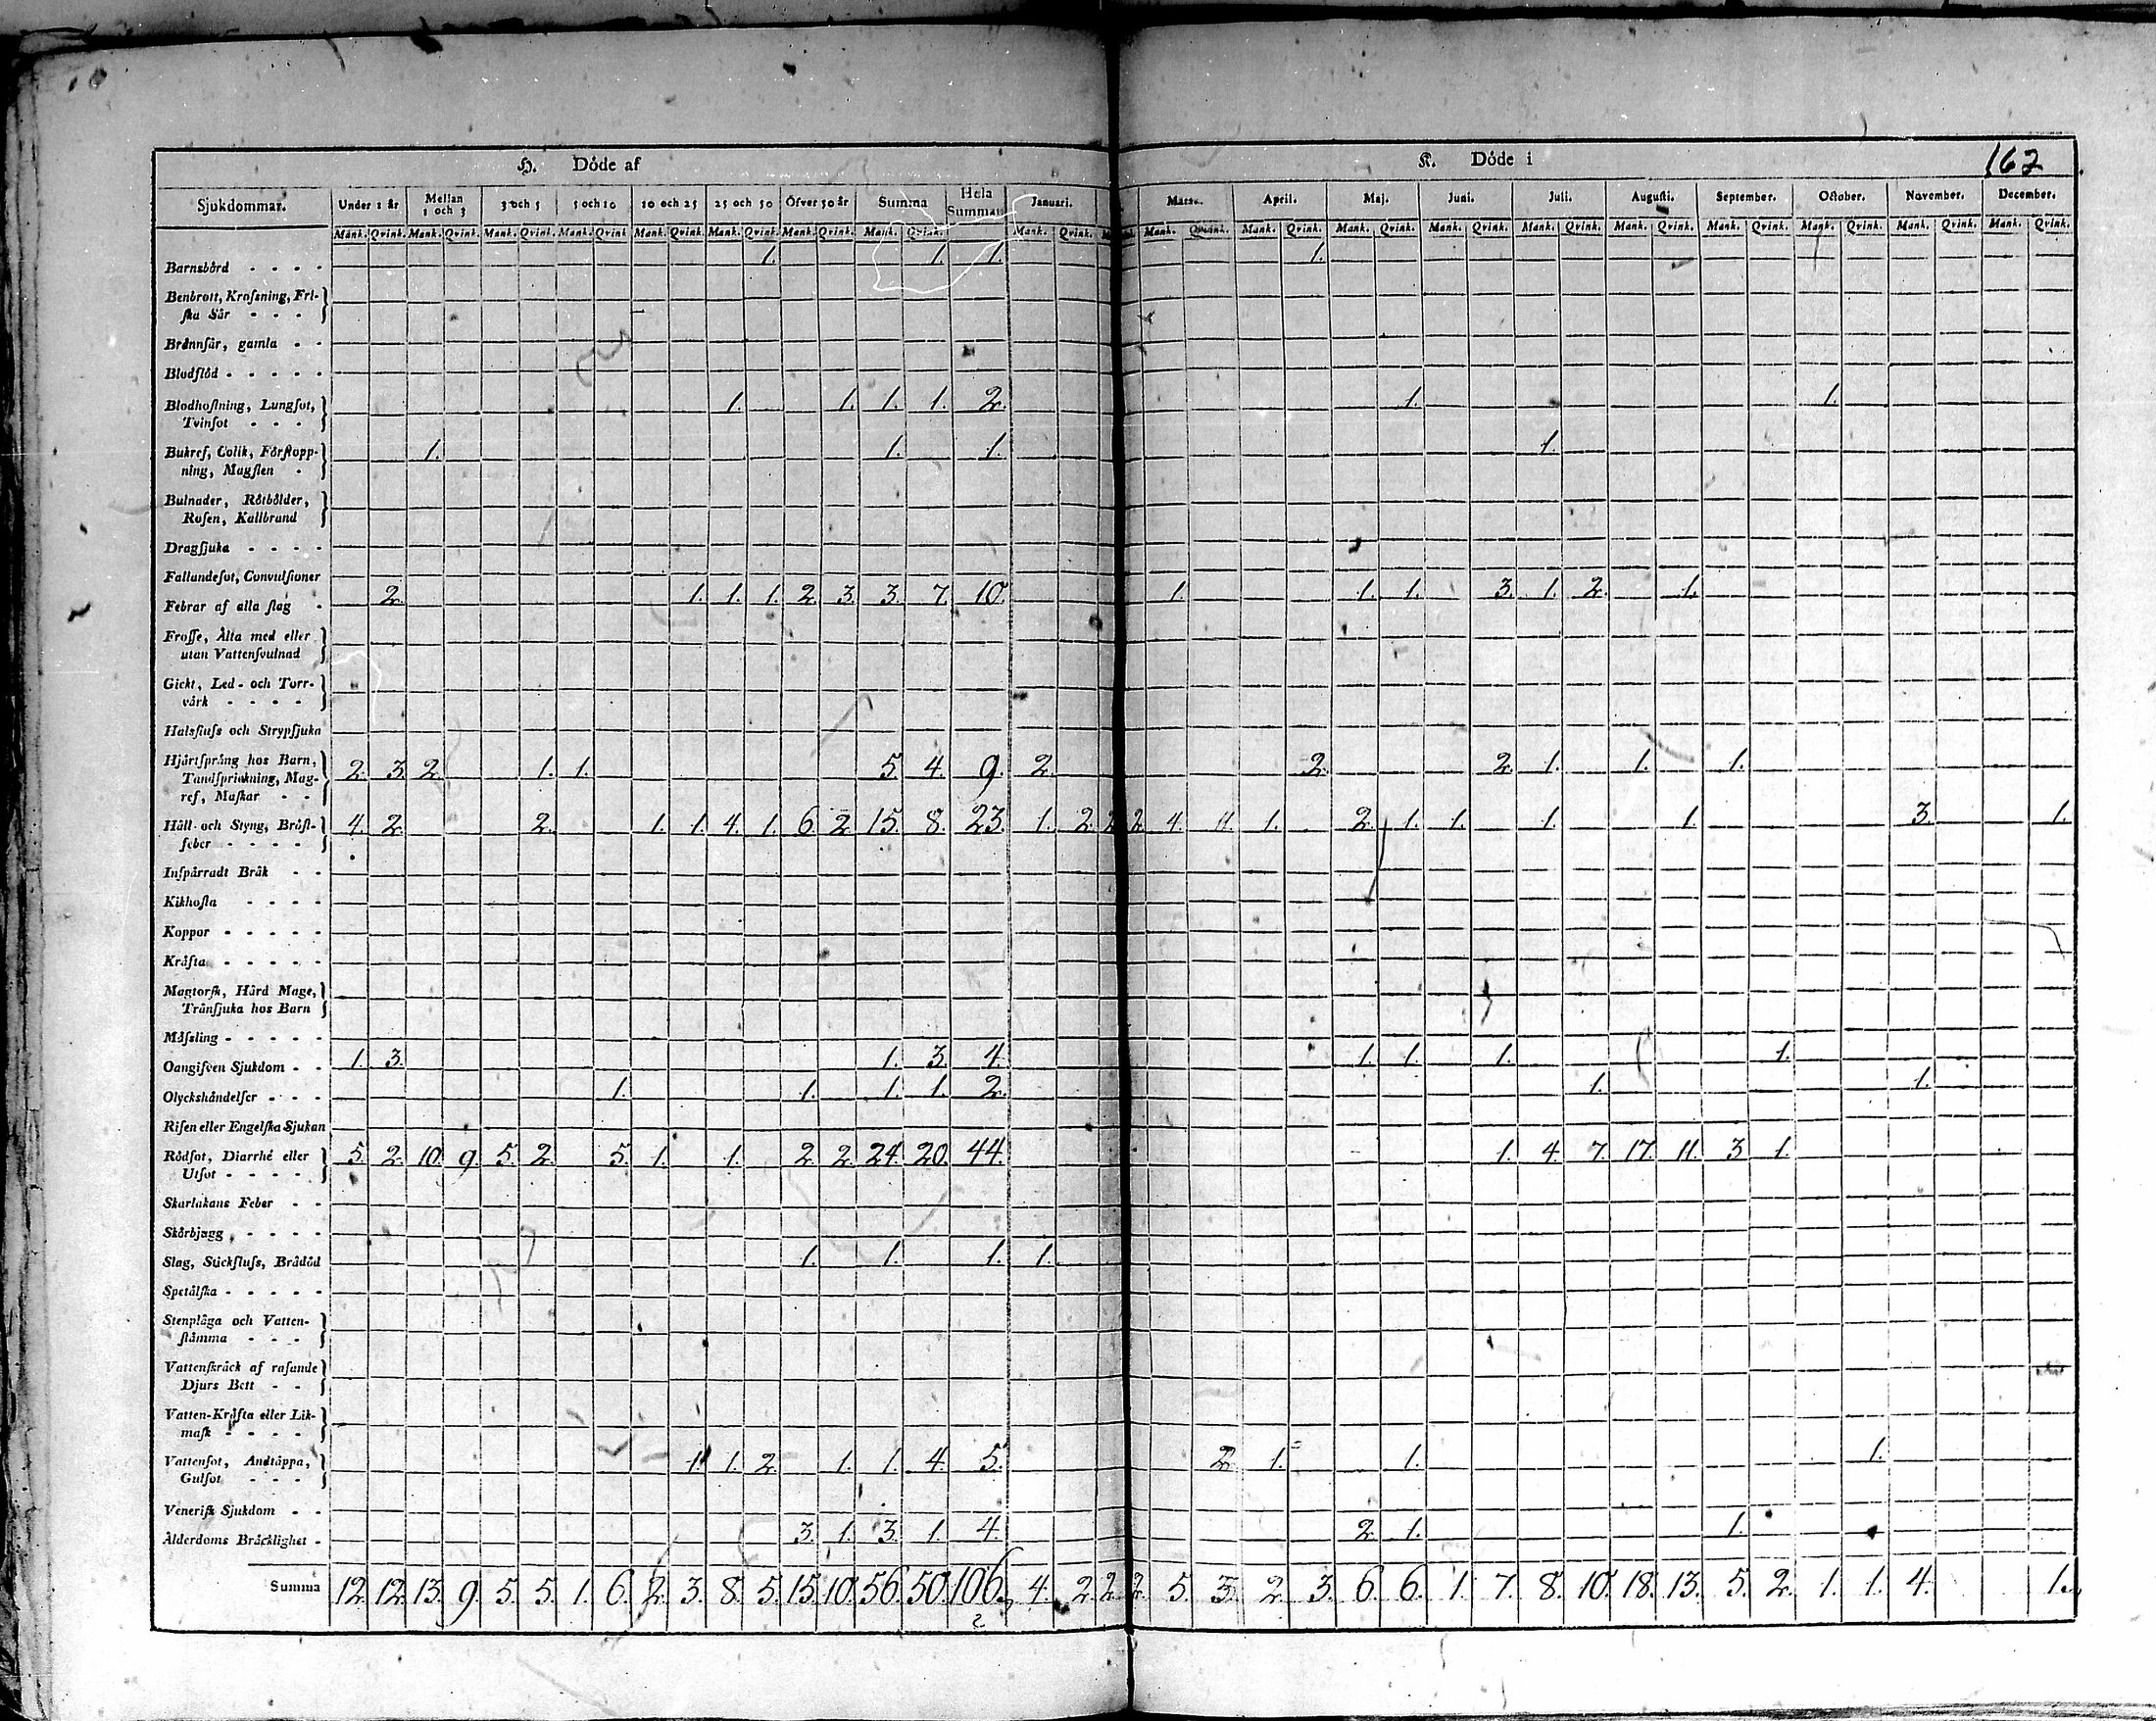 H. Döde af K. Döde i 162
Sjukdommar. Under 1 år Mellan 1 och 3 3 och 5 5 och 10 10 och 25 25 och 50 Öfver 50 år Summa Hela Summan Januari. Mars. April. Maj. Juni. Juli. Augusti. September. October. November. December.
Mank. Qvink. Mank. Qvink. Mank. Qvink. Mank. Qvink. Mank. Qvink. Mank. Qvink. Mank. Qvink. Mank. Qvink. Mank. Qvink. Mank. Qvink. Mank. Qvink. Mank. Qvink. Mank. Qvink. Mank. Qvink. Mank. Qvink. Mank. Qvink. Mank. Qvink. Mank. Qvink. Mank. Qvink.
Barnsbörd 1. 1. 1. 1.
Benbrott, Krossning, Fri-
ska Sår
Brännsår, gamla
Blodflöd
Blodhostning, Lungsot, 1. 1. 1. 1. 2. 1. 1.
Tvinsot
Bukref, Colik, Förstopp- 1. 1. 1. 1.
ning, Magsten
Bulnader, Rötbölder,
Rosen, Kallbrand
Dragsjuka
Fallandesot, Convulsioner
Febrar af alla slag 2. 1. 1. 1. 2. 3. 3. 7. 10. 1. 1. 1. 3. 1. 2. 1.
Frosse, Älta med eller
utan Vattensvulnad
Gickt, Led- och Torr-
värk
Halsfluss och Strypsjuka
Hjärtsprång hos Barn, 2. 3. 2. 1. 1. 5. 4. 9. 2. 2. 2. 1. 1. 1.
Tandsprickning, Mag-
ref, Maskar
Håll- och Styng, Bröst- 4. 2. 2. 1. 1. 4. 1. 6. 2. 15. 8. 23. 1. 2. 2. 2. 4. 1. 2. 1. 1. 1. 1. 3. 1.
feber
Inspärradt Bråk
Kikhosta
Koppor
Kräfta
Magtorsk, Hård Mage,
Tränsjuka hos Barn
Mässling
Oangifven Sjukdom 1. 3. 1. 3. 4. 1. 1. 1. 1.
Olyckshändelser 1. 1. 1. 1. 2. 1. 1.
Risen eller Engelska Sjukan
Rödsot, Diarrhé eller 5. 2. 10. 9. 5. 2. 5. 1. 1. 2. 2. 24. 20. 44. 1. 4. 7. 17. 11. 3. 1.
Utsot
Skarlakans Feber
Skörbjugg
Slag, Stickfluss, Brådöd 1. 1. 1. 1.
Spetälska
Stenplåga och Vatten-
stämma
Vattenskräck af rasande
Djurs Bett
Vatten-Kräfta eller Lik-
mask
Vattensot, Andtäppa, 1. 1. 2. 1. 1. 4. 5. 2. 1. 1. 1.
Gulsot
Venerisk Sjukdom
Ålderdoms Bräcklighet 3. 1. 3. 1. 4. 2. 1. 1.
Summa 12. 12. 13. 9. 5. 5. 1. 6. 2. 3. 8. 5. 15. 10. 56. 50. 106. 4. 2. 2. 2. 5. 3. 2. 3. 6. 6. 1. 7. 8. 10. 18. 13. 5. 2. 1. 1. 4. 1.